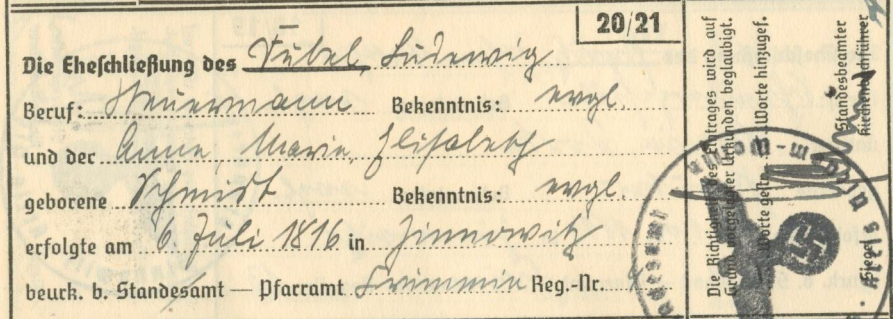 20/21
Die Eheschließung des Subel, Ludewig
Beruf: Steuermann Bekenntnis: evgl.
und der Anne, Marie, Elisabeth
geborene Schmidt Bekenntnis: evgl.
erfolgte am 6. Juli 1816 in Zinnowitz
beurk. b. Standesamt — Pfarramt Krummin Reg.-Nr. 4
Die Richtigkeit des Eintrages wird auf
Grund vorgelegter Urkunden beglaubigt.
Worte gestr. Worte hinzugef.
Standesbeamter
Kirchenbuchführer
Siegel